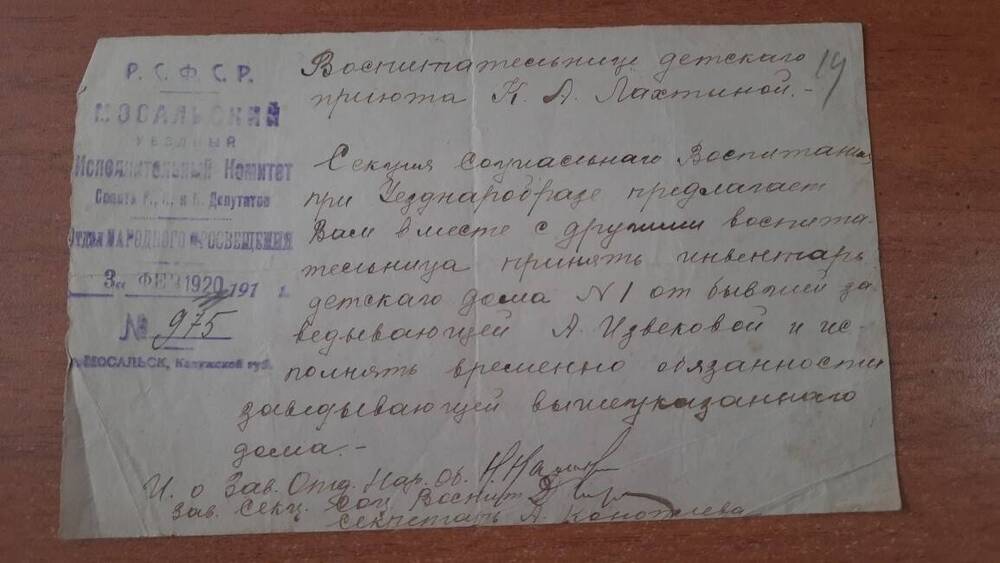 Р. С. Ф. С. Р.
МОСАЛЬСКИЙ
УЕЗДНЫЙ
Исполнительный Комитет
Совета Р., К. и К. Депутатов
Отдел НАРОДНОГО ПРОСВЕЩЕНИЯ
3 ФЕВ 1920 191 г.
№ 975
г. МОСАЛЬСК, Калужской губ.
19
Воспитательнице детского
приюта К. А. Лахтиной.-
Секция Социального Воспитания
при Уезднаробразе предлагает
Вам вместе с другими воспита-
тельница принять инвентарь
детского дома N1 от бывшей за-
ведывающей А. Извековой и ис-
полнять временно обязанности
заведывающей вышеуказанного
дома.-
И. о Зав. Отд. Нар. Об.
Зав. Секц. Соц. Воспит
Секретарь А.